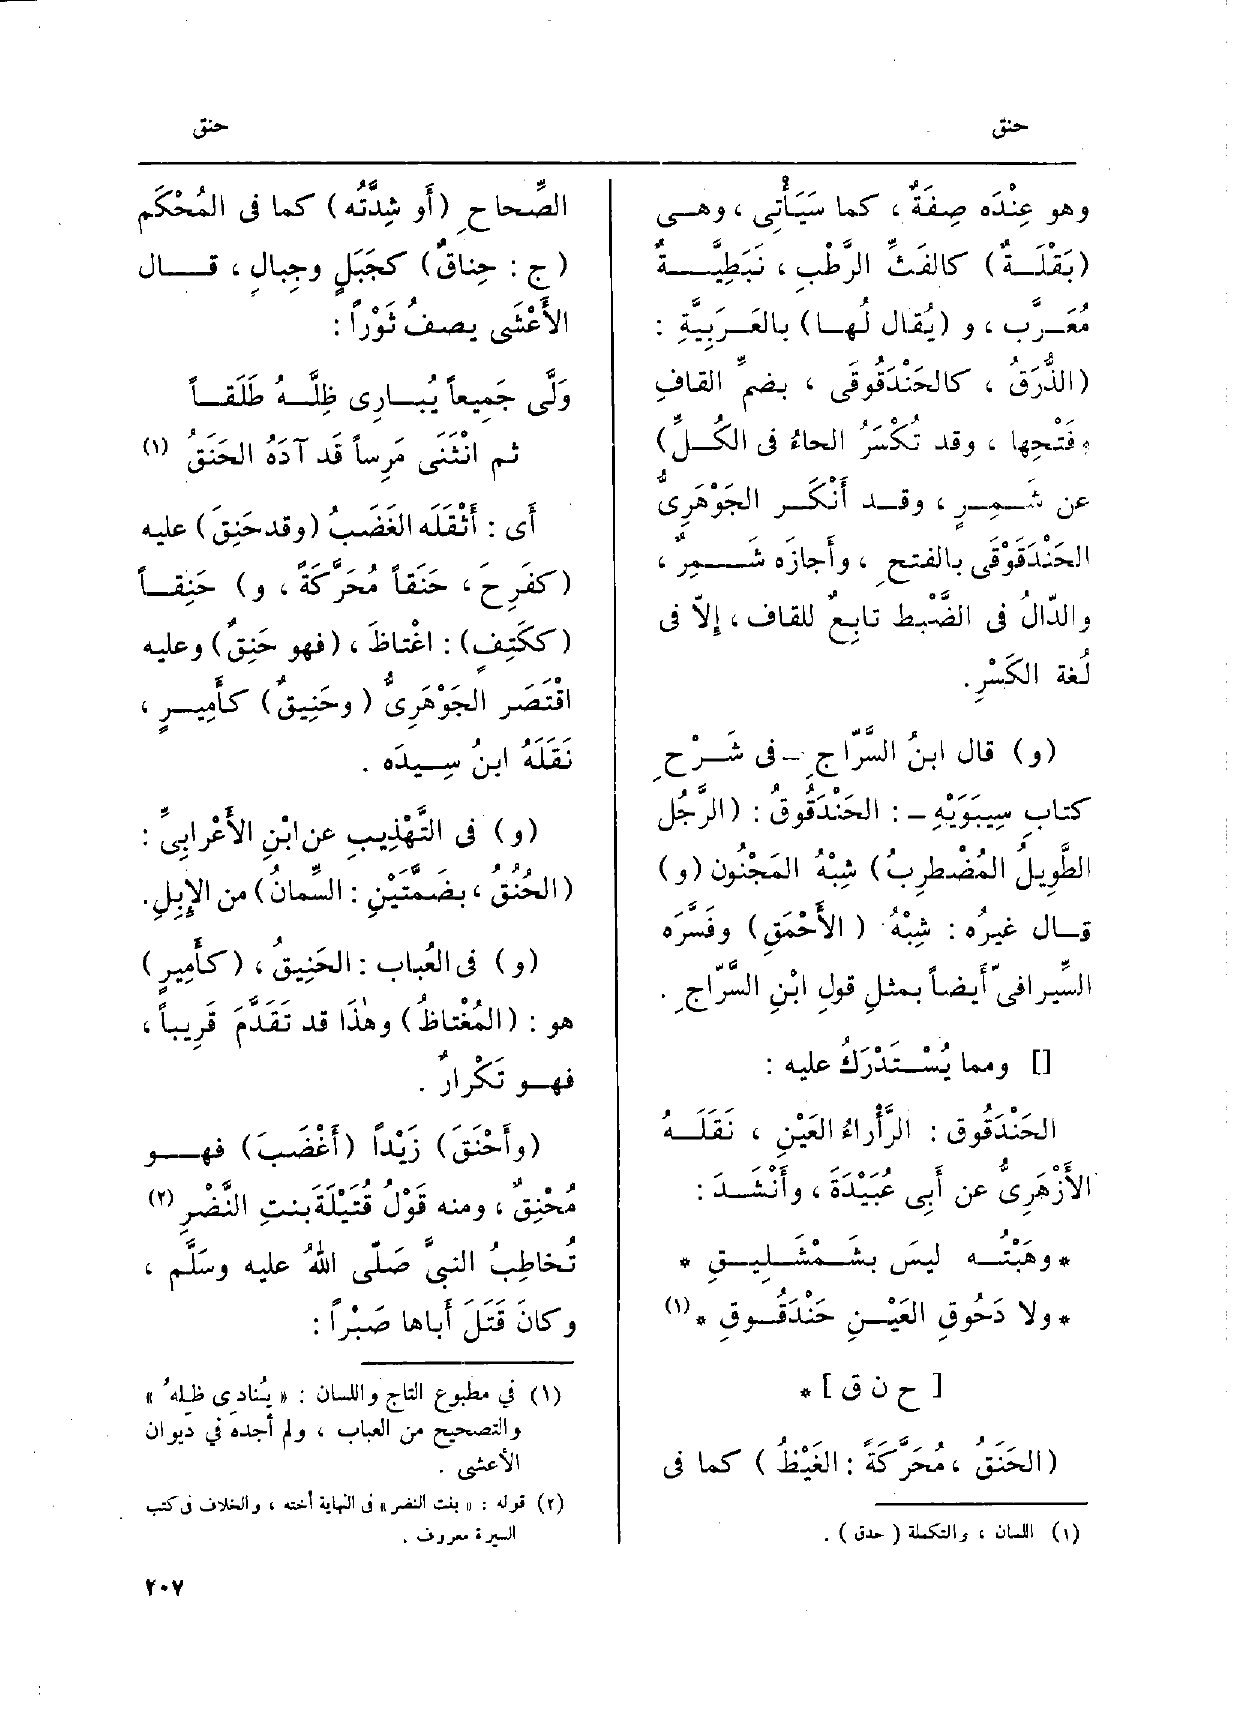 حنق
حنق
وهو عِنْدَه صِفَةٌ ، كما سَيَأْتِى ، وهـى
(بَقْلَـةٌ) كالفَثِّ الرَّطْبِ ، نَبَطِيَّـــةٌ
مُعَــرَّب ، و (يُقال لَهـا) بالعَــرَبِيَّةِ :
(الذُّرَقُ ، كالحَنْدَقُوقَى ، بضمِّ القافِ
وفَتْحِها ، وقد تُكْسَرُ الحاءُ فى الكُلِّ)
عن شَـمِـرٍ ، وقـد أَنْكَـر الجَوْهَرِىُّ
الحَنْدَقَوْقَى بالفتحِ ، وأَجازَه شَـــمِرٌ ،
والدّالُ فى الضَّبْط تابِعٌ للقاف ، إِلاّ فى
لُغة الكَسْرِ.
(و) قال ابنُ السَّرّاجِ ـ فى شَــرْحِ
كتابِ سِيبَوَيْهِ ـ : الحَنْدَقُوقُ : (الرَّجُل
الطَّوِيلُ المُضْطرِبُ) شِبْهُ المَجْنُونِ (و)
قـال غيرُه : شِبْهُ (الأَحْمَقِ) وفَسَّرَه
السِّيرافىّ أَيضاً بمثلِ قولِ ابْنِ السَّرّاجِ .
[] ومما يُسْـتَدْرَكُ عليه :
الحَنْدَقُوق : الرَّأْراءُ العَيْنِ ، نَقَلَــهُ
الأَزْهَرِىُّ عن أَبى عُبَيْدَةَ ، وأَنْشَـدَ :
* وهَبْتُــه ليسَ بشَـمْشَلِيـقِ *
* ولا دَحُوقِ العَيْـنِ حَنْدَقُـوقِ * (١)
[ ح ن ق ] *
(الحَنَقُ ، مُحَرَّكَةً : الغَيْظُ) كما فى
(١) اللسان ، والتكملة (حدق) .
الصِّحاحِ (أَو شِدَّتُه) كما فى المُحْكَمِ
(ج : حِناقٌ) كجَبَلٍ وجِبالٍ ، قـــال
الأَعْشَى يصفُ ثَوْراً :
وَلَّى جَمِيعاً يُبـارِى ظِلَّــهُ طَلَقـاً
ثم انْثَنَى مَرِساً قد آدَهُ الحَنَقُ (١)
أَى : أَثْقَلَه الغَضَبُ (وقد حَنِقَ) عليه
(كفَرِحَ ، حَنَقاً مُحَرَّكَةً ، و) حَنِقـاً
(ككَتِفٍ) : اغْتاظَ ، (فهو حَنِقٌ) وعليه
اقْتَصَر الجَوْهَرِىُّ (وحَنِيقٌ) كأَمِيـرٍ ،
نَقَلَهُ ابنُ سِـيدَه .
(و) فى التَّهْذِيبِ عن ابْنِ الأَعْرابِىِّ :
(الحُنُقُ ، بضَمَّتَيْنِ : السِّمانُ) من الإِبِلِ.
(و) فى العُباب : الحَنِيقُ ، (كأَمِيرٍ)
هو : (المُغْتاظُ) وهٰذا قد تَقَدَّمَ قَرِيباً ،
فهـو تَكْرارٌ .
(وأَحْنَقَ) زَيْداً (أَغْضَبَ) فهــو
مُحْنِقٌ ، ومنه قَوْلُ قُتَيْلَةَ بنتِ النَّضْرِ (٢)
تُخاطِبُ النبىَّ صَلَّى اللهُ عليه وسَلَّم ،
وكانَ قَتَلَ أَباها صَبْراً :
(١) في مطبوع التاج واللسان : « يُنادى ظله »
والتصحيح من العباب ، ولم أجده في ديوان
الأعشى .
(٢) قوله : « بنت النضر » فى النهاية أخته ، والخلاف فى كتب
السيرة معروف .
٢٠٧